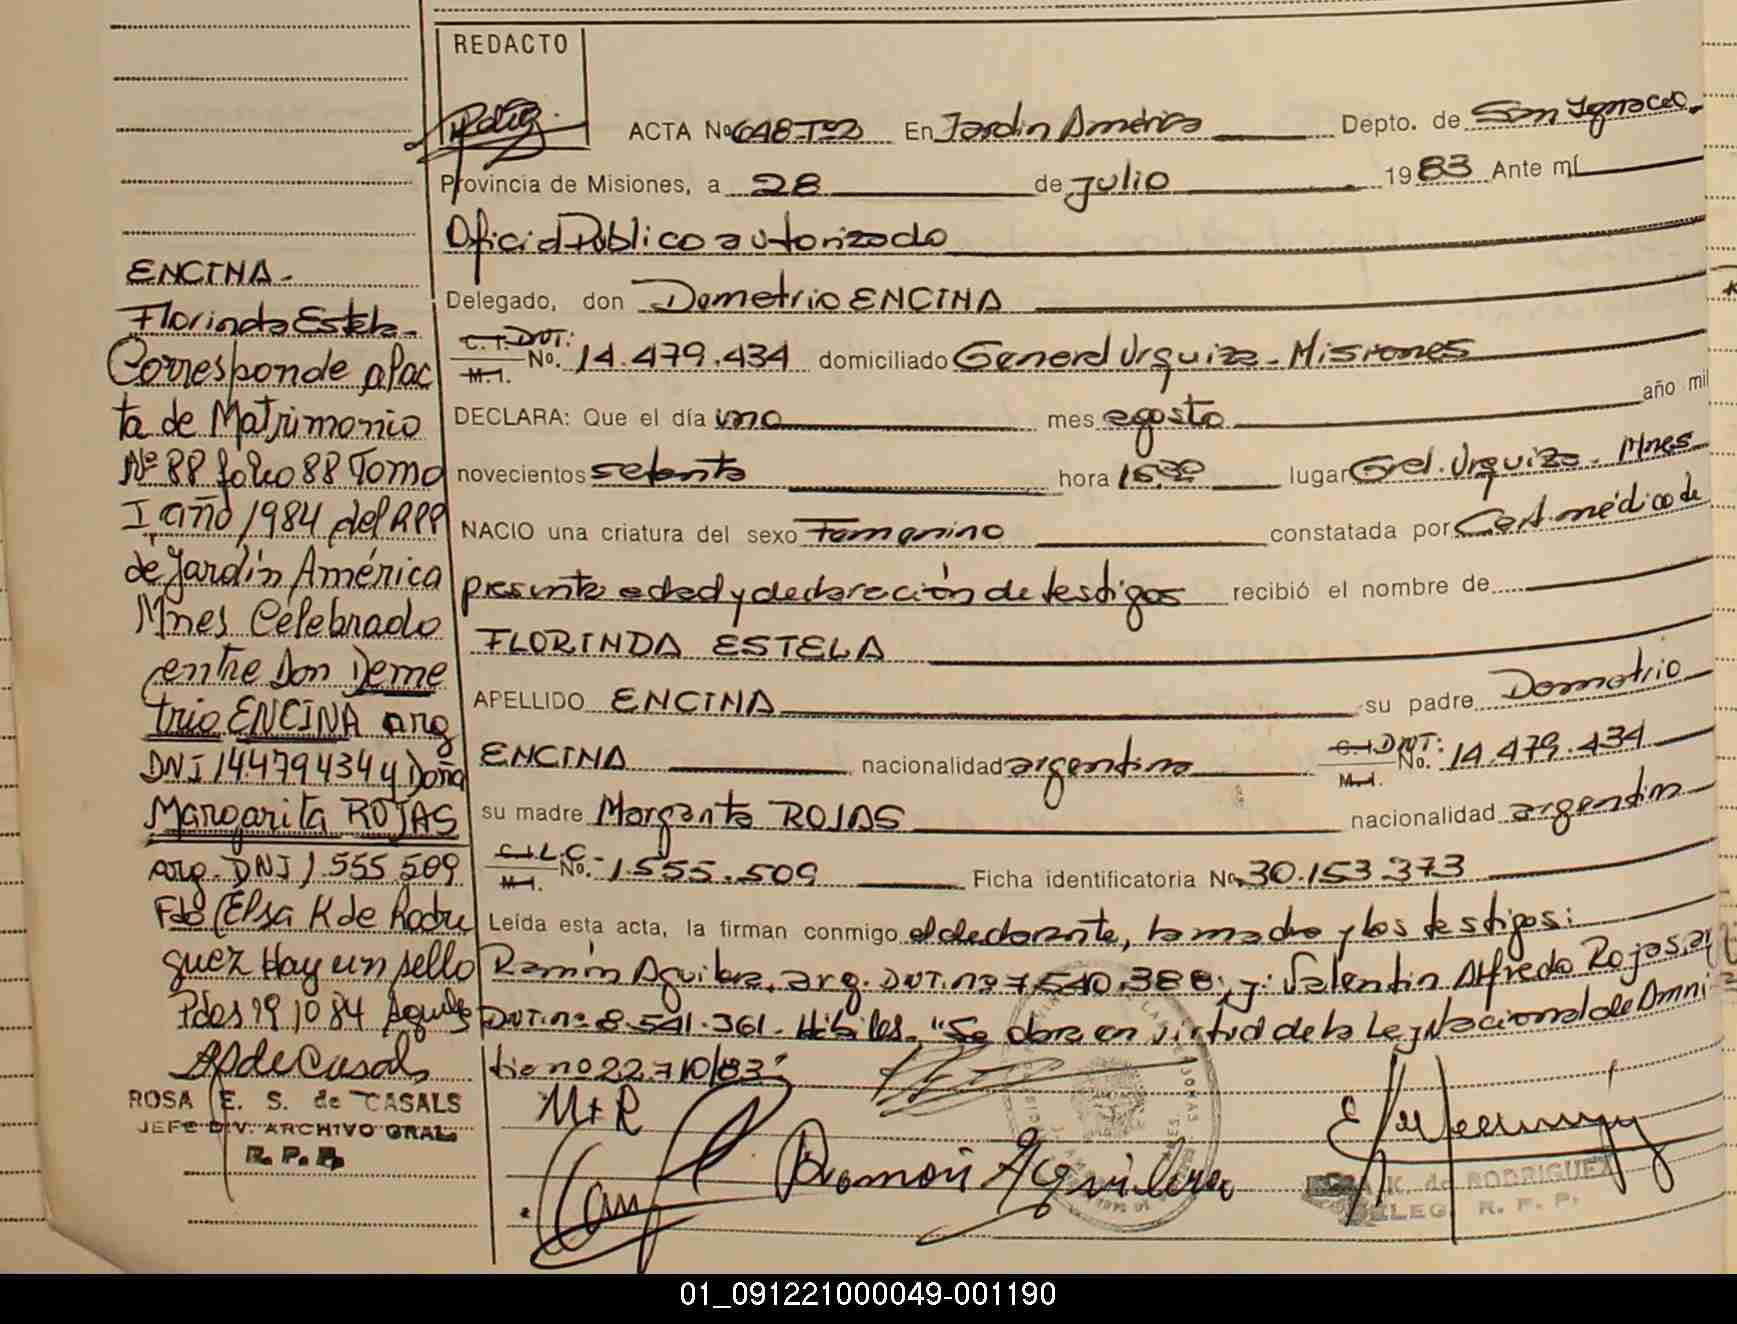 REDACTO
ACTA No 648 T=2 En Jardin América Depto. de San Ignacio.
Provincia de Misiones, a 28 de julio 1983 Ante mí
Oficial Público autorizado
Delegado, don Demetrio ENCINA
C.I. DNI: M.I. No. 14.479.434 domiciliado General Urquiza - Misiones
DECLARA: Que el día uno mes agosto año mil
novecientos setenta hora 15,30 lugar Gral. Urquiza - Mnes
NACIO una criatura del sexo Femenino constatada por Cert. médico de
presunta edad y declaración de testigos recibió el nombre de
FLORINDA ESTELA
APELLIDO ENCINA su padre Demetrio
ENCINA nacionalidad argentina C.I. DNI: M.I. No. 14.479.434
su madre Margarita ROJAS nacionalidad argentina
C.I. L.C. M.I. No. 1.555.509 Ficha identificatoria No. 30.153.373
Leída esta acta, la firman conmigo el declarante, la madre y los testigos:
Ramón Aguilera, arg. DNI. nº 7.540.388; y: Valentin Alfredo Rojas, ar
DNI. nº 8.541.361. Hábiles. "Se obra en virtud de la Ley Nacional de Amnis
tia nº 22.710/83"
M+R
Ramón Aguilera
K. de RODRIGUEZ
DELEG. R. P. P.
ENCINA-
Florinda Estela-
Corresponde al ac
ta de Matrimonio
Nº 88 folio 88 Tomo
I año 1984 del RPP
de Jardín América
Mnes Celebrado
entre Don Deme
trio ENCINA arg
DNI 14479434 y Doña
Margarita ROJAS
arg. DNI 1.555 509
Fdo Elsa K de Rodrí
guez Hay un sello
Pdas 19 10 84
AS de Casals
ROSA E. S. de CASALS
JEFE DIV. ARCHIVO GRAL.
R. P. P.
01_091221000049-001190